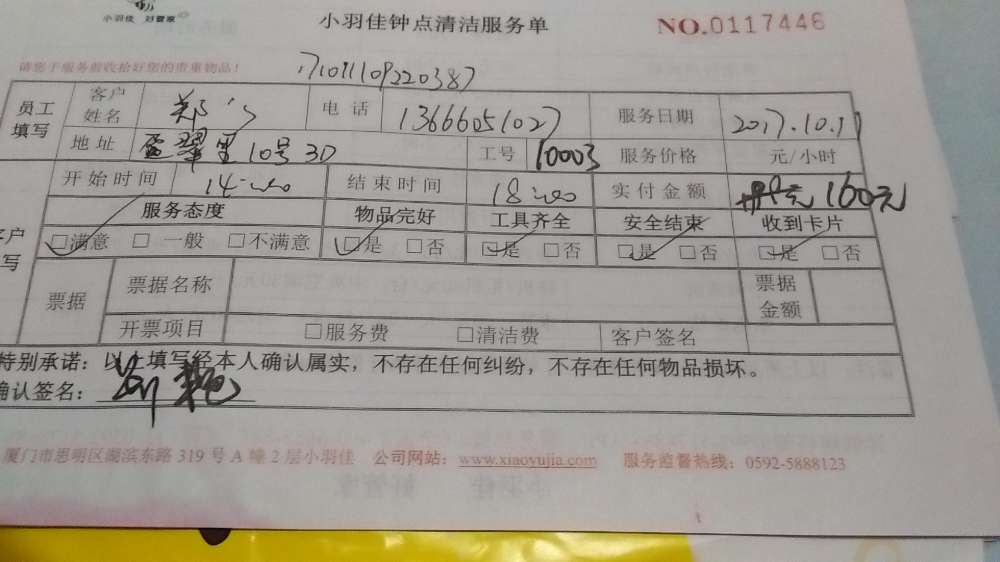 小羽佳 好管家
小羽佳钟点清洁服务单
NO.0117446
请您于服务前收拾好您的贵重物品!
员工填写
客户姓名 郑
电话 13666051027
服务日期 2017.10.11
地址 盈翠里10号3D
工号 10003
服务价格 元/小时
开始时间 14:00
结束时间 18:00
实付金额 160元
服务态度 物品完好 工具齐全 安全结束 收到卡片
☑满意 □一般 □不满意 ☑是 □否 ☑是 □否 ☑是 □否 ☑是 □否
票据
票据名称
票据金额
开票项目 □服务费 □清洁费 客户签名
特别承诺:以上填写经本人确认属实,不存在任何纠纷,不存在任何物品损坏。
确认签名:
厦门市思明区湖滨东路319号A幢2层小羽佳 公司网站:www.xiaoyujia.com 服务监督热线:0592-5888123